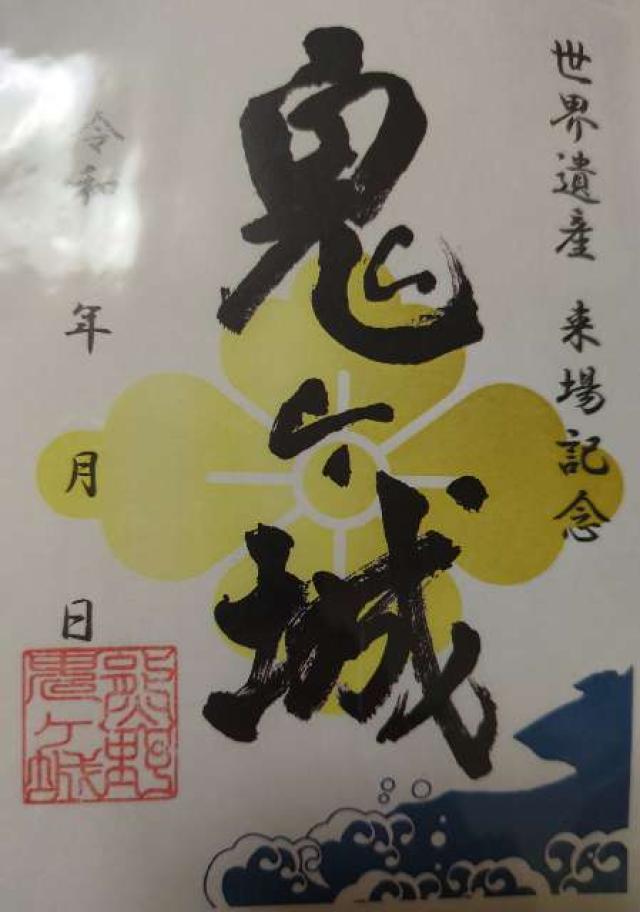 世界遺産 来場記念
鬼ヶ城
令和 年 月 日
熊野
鬼ヶ城